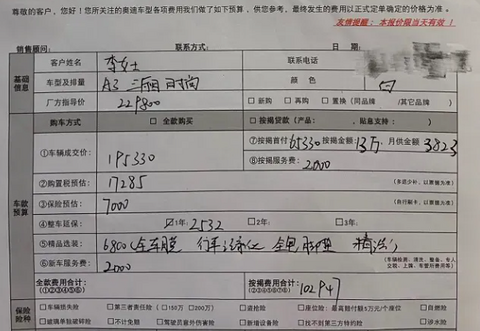 尊敬的客户，您好！您所关注的奥速车型各项费用我们做了如下预算，供您参考，最终发生的费用以正式定单确定的价格为准。
友情提醒：本报价限当天有效！
销售顾问： 联系方式： 日期：
基础信息
客户姓名 李女士 联系电话
车型及排量 A3 三厢 时尚 颜色 白
厂方指导价 229800 □新购 □再购 □置换（同品牌 /其它品牌 ）
车款预算
购车方式 □全款购买 □按揭贷款（产品： ,贴息支持： ）
①车辆成交价: 195330 ⑦按揭首付 65330 按揭金额 13万 月供金额 3823
⑧按揭服务费: 2000
②购置税预估: 17285 （多退少补，以票据为准）
③保险预估: 7000 （自行刷卡，以票据为准）
④整车延保: ☑1年: 2532 □2年: □3年:
⑤精品选装: 6800（全车膜 行车记录仪 全包脚垫 精洗）
⑥新车服务费: 2000
全款费用合计: (①②③④⑤⑥) 按揭费用合计: 102947
保险险种
□车辆损失险 □第三者责任险（□150万 □200万） □盗抢险 □座位险: 最高赔付额5万元/个座位 □自燃险
□玻璃单独破碎险 □不计免赔 □驾驶员意外伤害险 □新增设备险 □找不到第三方特约险 □涉水险